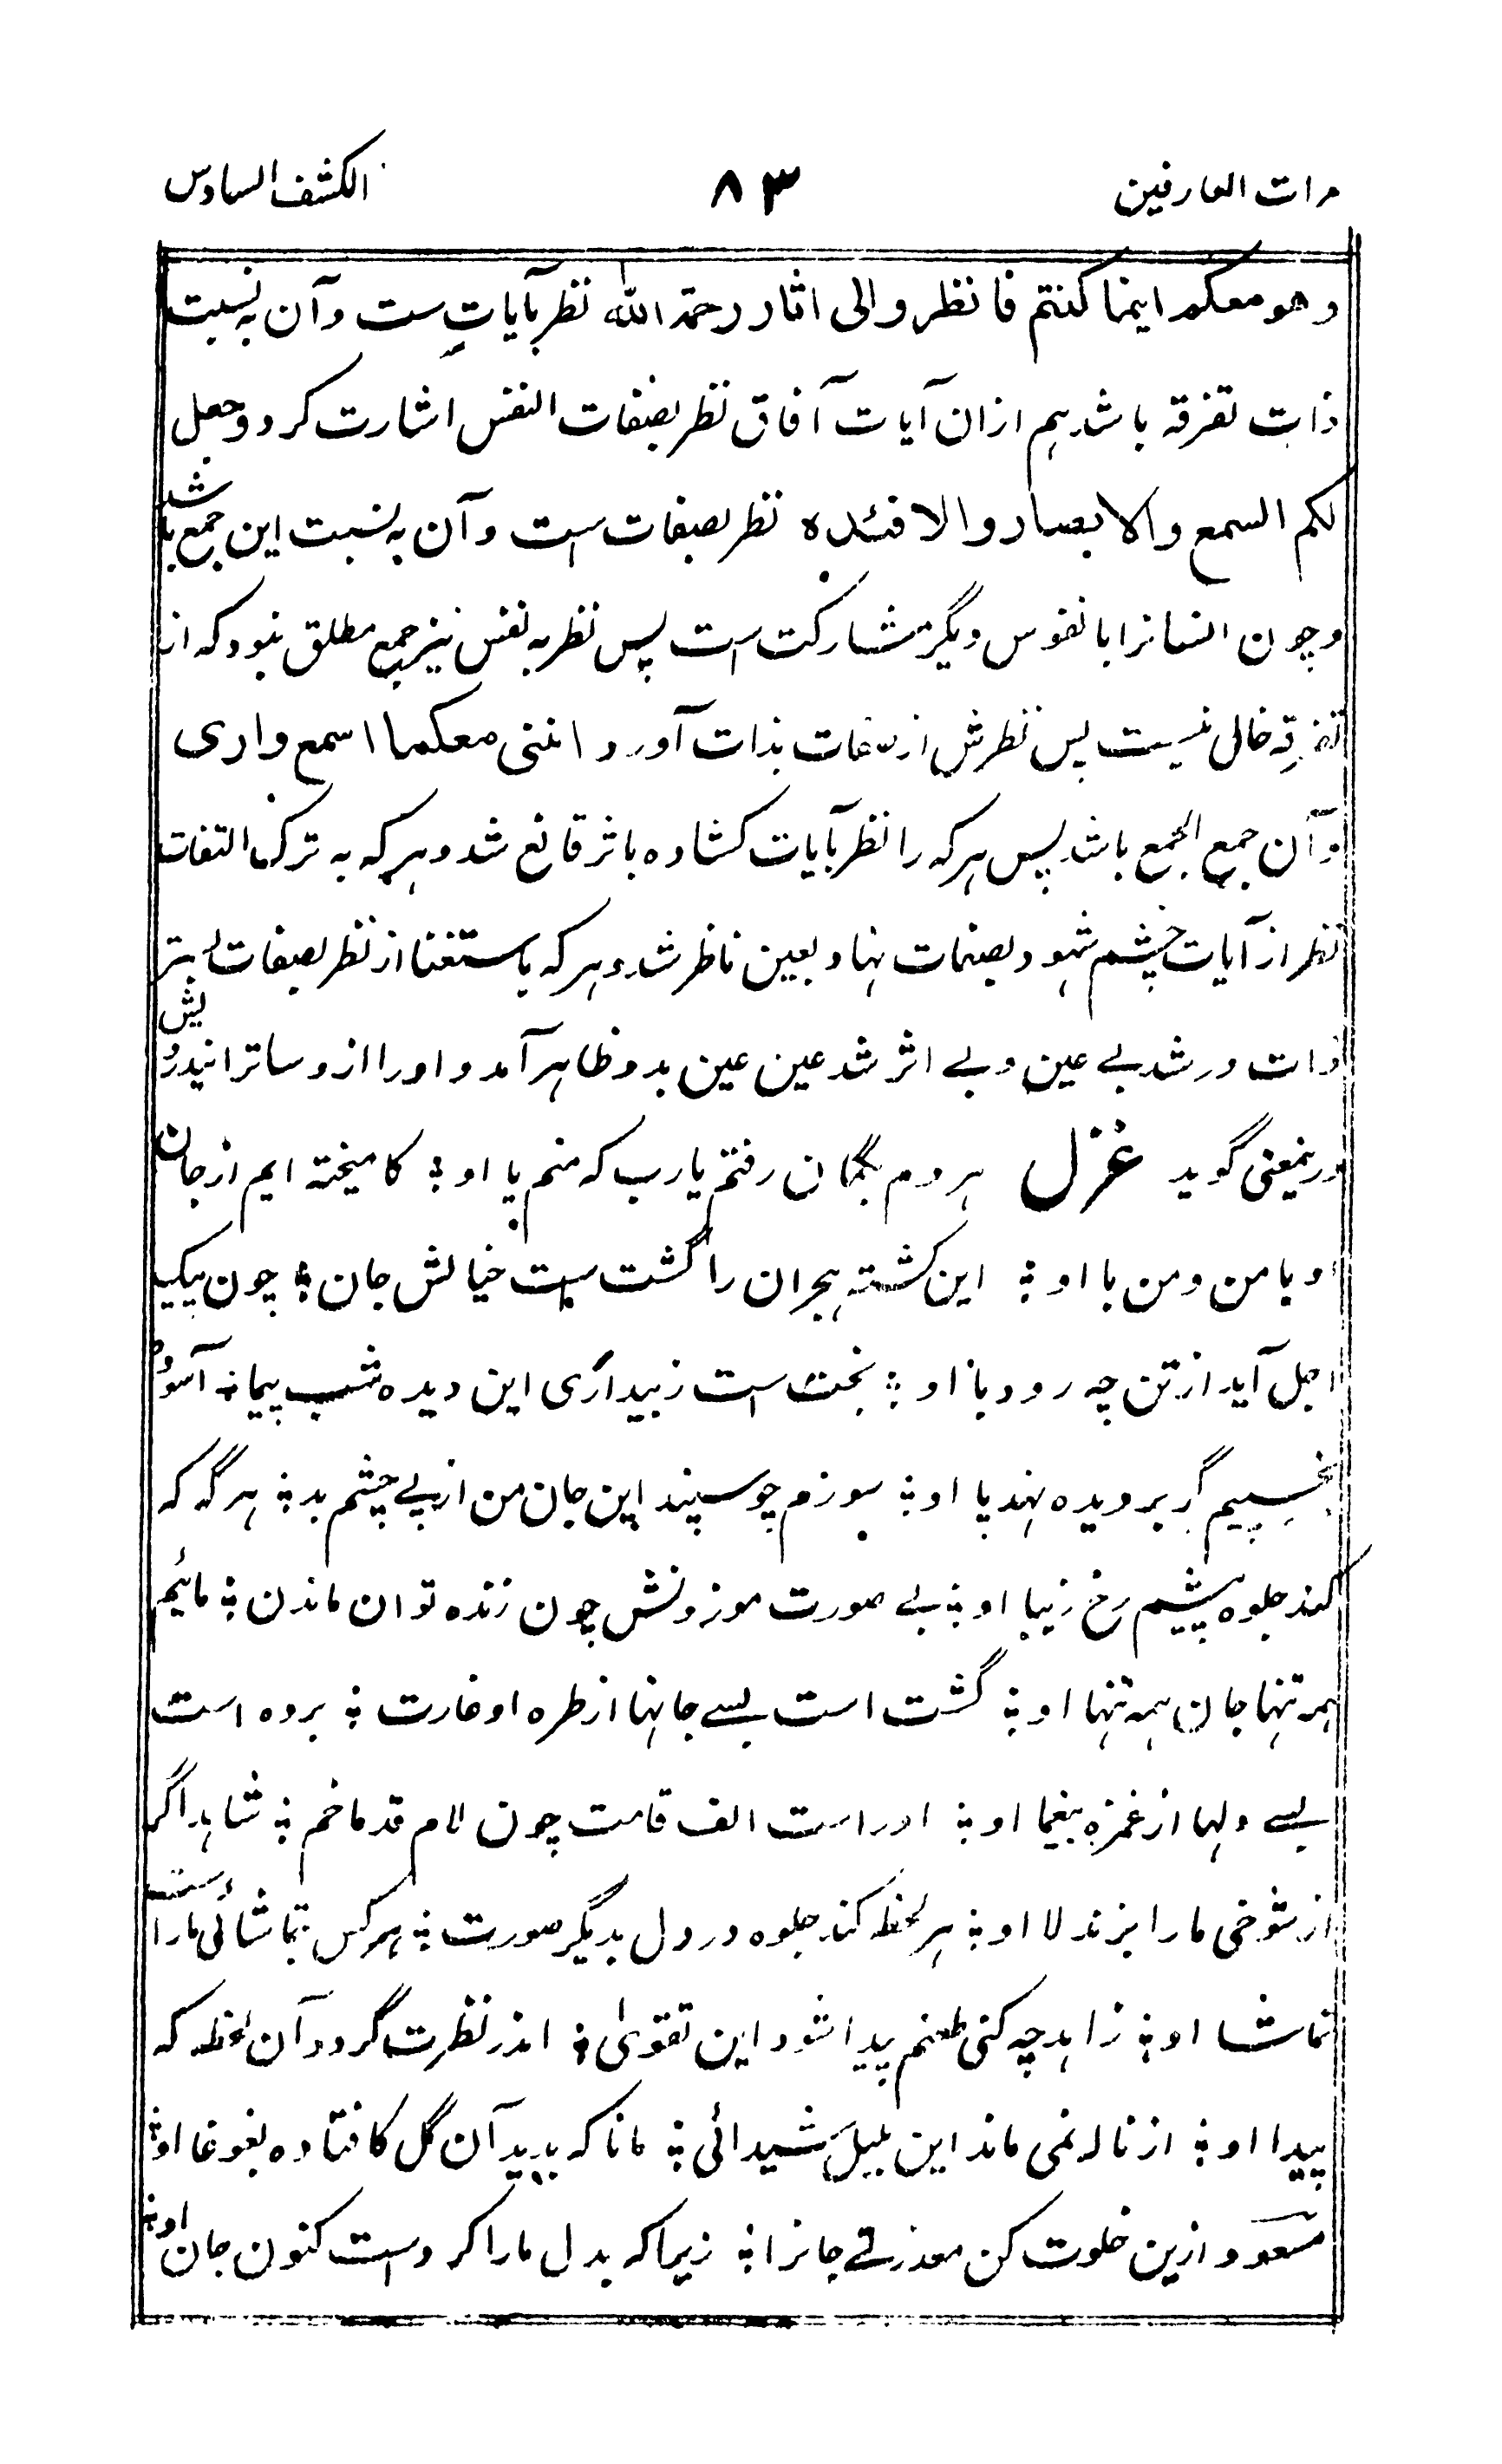 مرات العارفین ۸۳ الکشف السادس
وهو معکم اینما کنتم فانظر والی اثار رحمة الله نظر بآیات ست و آن به نسبت
ذات تفرقه باشد هم ازان آیات آفاق نظر بصفات النفس اشارت کرد و جعل
لکم السمع والابصار والافئدة نظر بصفات ست و آن به نسبت این جمع باشد
و چون انسانرا با نفوس دیگر مشارکت ست پس نظر به نفس نیز جمع مطلق نبود که از
تفرقه خالی نیست پس نظرش از صفات بذات آورد اننی معکما اسمع واری
و آن جمع الجمع باشد پس هر که را نظر بآیات کشاده باثر قانع شد و هر که به ترک التفات
نظر از آیات چشم شهود بصفات نهاد بعین ناظر شد و هر که باستغنا از نظر بصفات
ذات در شد بے عین و بے اثر شد عین عین بدو ظاهر آمد و اورا ازو ساتر
درینمعنی گوید غزل هر دم بگمان رفتم یا رب که منم یا او ؛ کامیخته ایم از جان
او با من و من با او ؛ این کشته هجران را گشت ست خیالش جان ؛ چون پیک
اجل آید از تن چه رود با او ؛ بخت ست ز بیداری این دیده شب پیما ؛ آسوده
بخسپیم گر بر دیده نهد پا او ؛ سوزم چو سپند این جان من از پے چشم بد ؛ هر گه که
کند جلوه پیشم رخ زیبا او ؛ بے صورت موزونش چون زنده توان ماندن ؛ مائیم
همه تنها جان همه تنها او ؛ گشت است بسے جانها از طره او غارت ؛ برده است
بسے دلها از غمزه بیغما او ؛ او راست الف قامت چون لام قد ما خم ؛ شاهد اگر
از شوخی ما را بزند لا او ؛ هر لحظه کند جلوه در دل بدیگر صورت ؛ هر کس بتماشائی ما را است
تماشا او ؛ زاهد چه کنی طعنم پیدا شود این تقوی ؛ اندر نظرت گردد آن لحظه که
پیدا او ؛ از ناله نمی ماند این بلبل شیدائی ؛ مانا که بدید آن گل کافتاده بغوغا او ؛
مسعود ازین خلوت کن معذرتے جانرا ؛ زیرا که بدل ما را کردست کنون جان او ؛